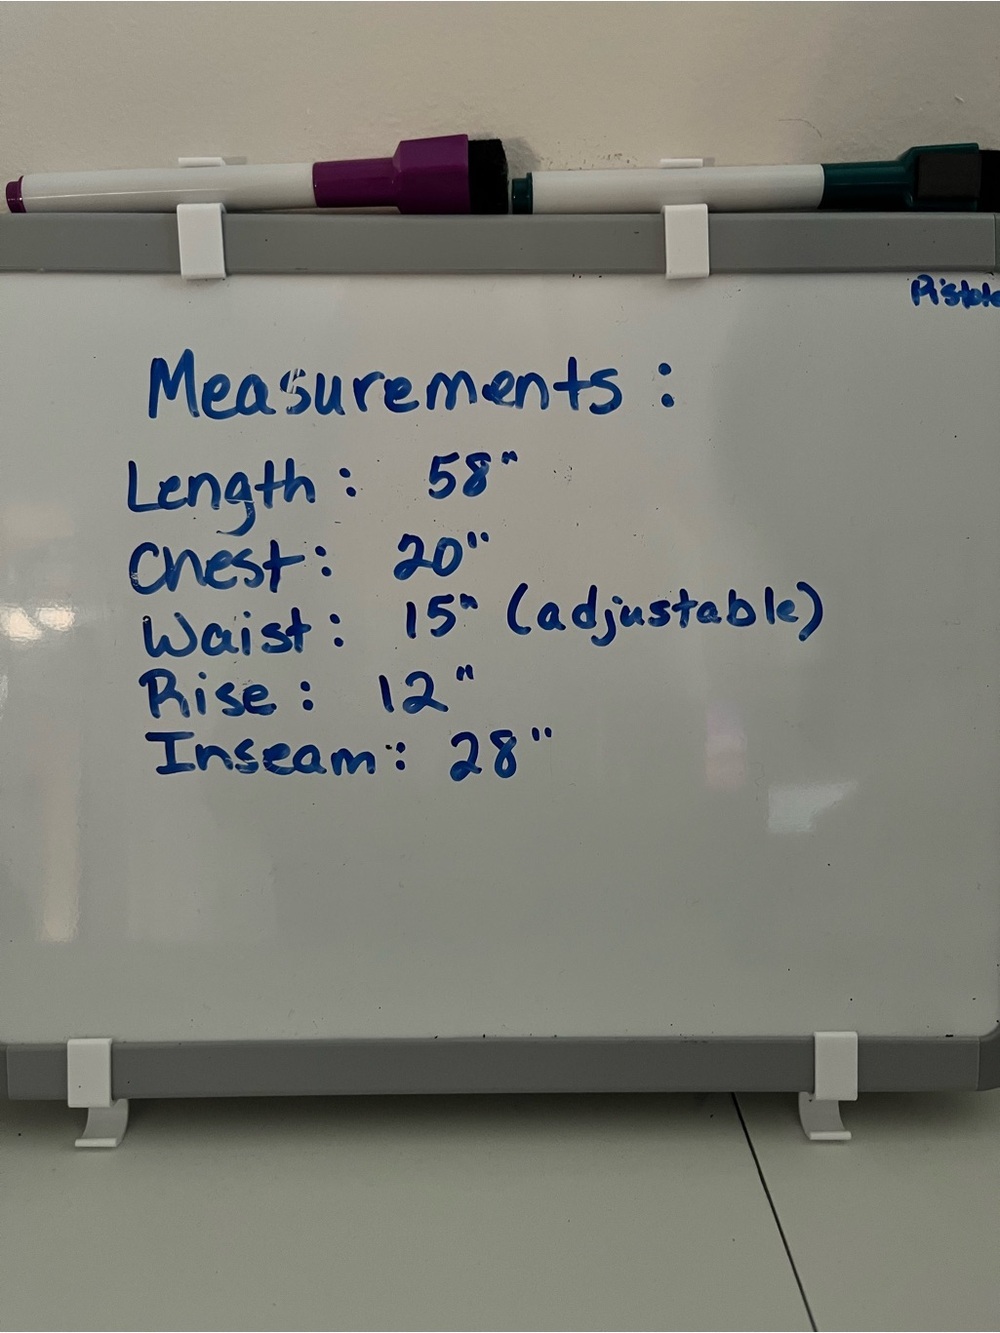 Measurements:
Length: 58"
Chest: 20"
Waist: 15" (adjustable)
Rise: 12"
Inseam: 28"